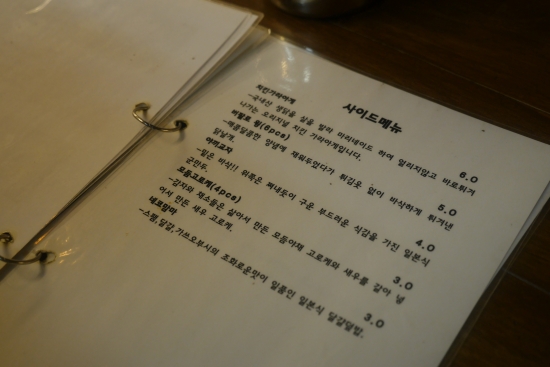 사이드메뉴
치킨가라아게 6.0
-국내산 생닭을 살을 발라 마리네이드 하여 얼리지않고 바로튀겨
나가는 오리지널 치킨 가라아게입니다.
버팔로 윙(6pcs) 5.0
-매콤달콤한 양념에 재워두었다가 튀김옷 없이 바삭하게 튀겨낸
닭날개
야끼교자 4.0
-밑은 바삭!! 위쪽은 쪄내듯이 구운 부드러운 식감을 가진 일본식
군만두.
모듬고로케(4pcs) 3.0
-감자와 채소들은 삶아서 만든 모듬야채 고로케와 새우를 갈아 넣
어서 만든 새우 고로케.
네코맘마 3.0
-스팸,달걀,가쓰오부시의 조화로운맛이 일품인 일본식 달걀덮밥.